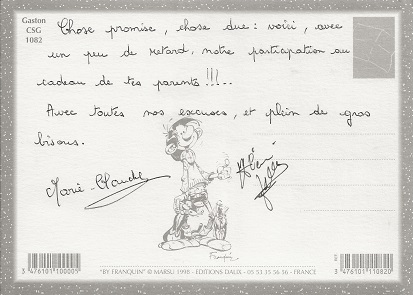 Gaston
CSG
1082
Chose promise, chose due : voici, avec
un peu de retard, notre participation au
cadeau de tes parents !!!...
Avec toutes nos excuses, et plein de gros
bisous.
Marie-Claude
Franquin
3 476101 100005
"BY FRANQUIN" © MARSU 1998 - EDITIONS DALIX - 05 53 35 56 56 - FRANCE
3 476101 110820